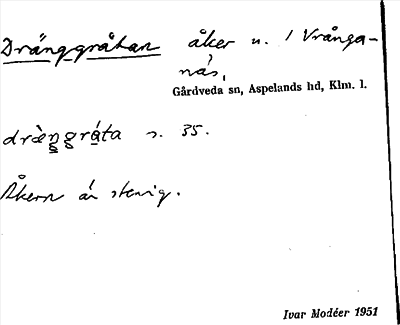 Dränggråtan åker u. / Vrånga-
näs,
Gårdveda sn, Aspelands hd, Klm. l.
dræ̀ŋgráta s. 35.
Åkern är stenig.
Ivar Modéer 1951